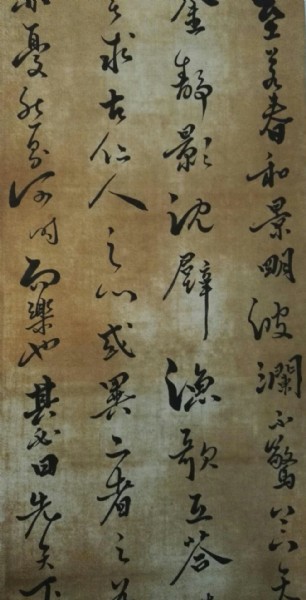 至若春和景明波瀾不驚上下天
金静影沈璧漁歌互答
求古仁人之心或異二者之為
亦憂然則何時而樂也其必曰先天下